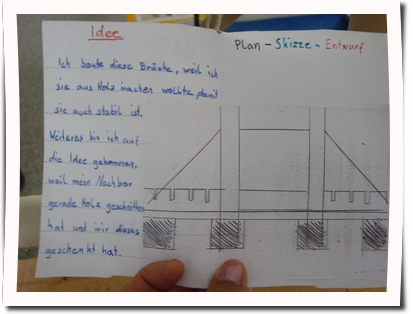 Idee
Plan - Skizze - Entwurf
Ich baute diese Brücke, weil ich
sie aus Holz machen wollte, damit
sie auch stabil ist.
Weiteres bin ich auf
die Idee gekommen,
weil mein Nachbar
gerade Holz geschnitten
hat und mir dieses
geschenkt hat.